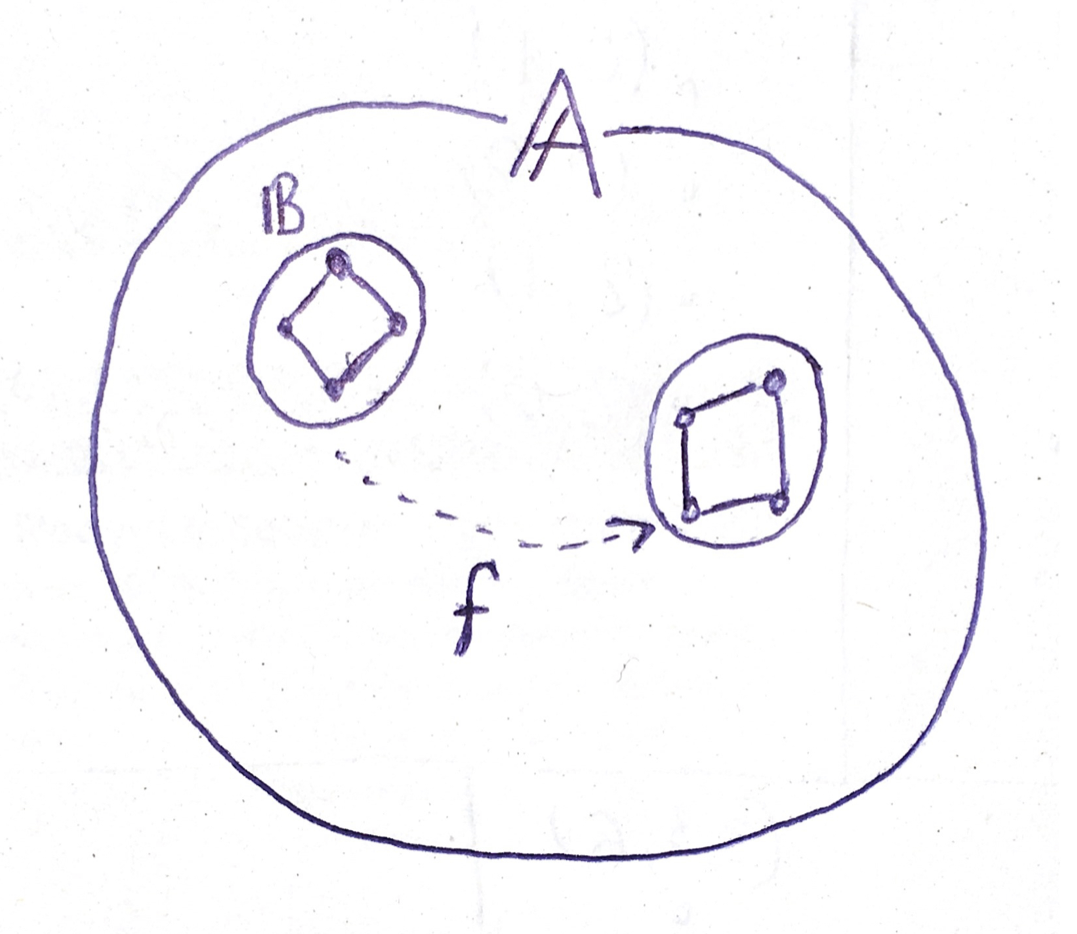 𝔸
𝔹
f